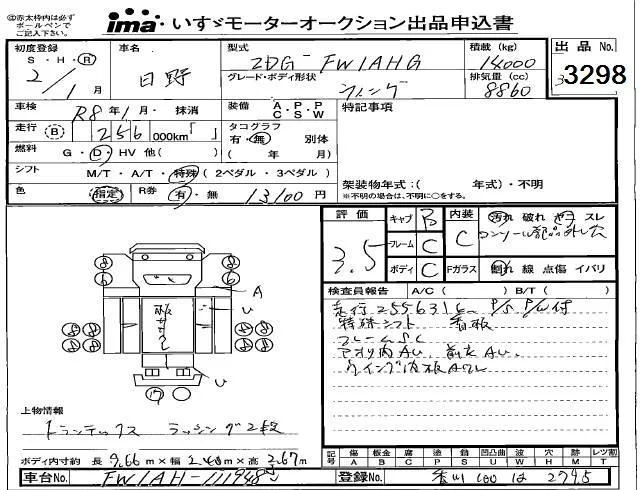 ◎赤太枠内は必ず
ボールペンで
ご記入下さい。
ima いすゞモーターオークション出品申込書
初度登録 車名 型式 積載 (kg) 出品 No.
S・H・R 2/1月 日野 2DG-FW1AHG 14000
グレード・ボディ形状 排気量 (cc) 3298
ウィング 8860
車検 R8年1月・抹消 装備 A・P・P C・S・W 特記事項
走行 B 256 000km「 」 タコグラフ 有・無 別体
燃料 G・D・HV 他( ) ( 年 月)
シフト M/T・A/T・特殊 (2ペダル・3ペダル)
架装物年式:( 年式)・不明
※不明の場合は、不明に○をする。
色 指定 R券 有・無 13100円
評価 キャブ B 内装 汚れ 破れ ヤヲ スレ
3.5 フレーム C C コンソール部品外し穴
ボディ C Fガラス 割れ 線 点傷 イバリ
検査員報告 A/C( ) B/T( )
走行255631㎞ P/S P/W付
特殊シフト 看板
フレームSC
アオリ内AU、前立AU、
ウイング内板Aワレ
A
U
板ササクレ
U
⑰
上物情報
トランテックス ラッシング2段
ボディ内寸約 長 9.66m×幅 2.40m×高 2.67m
記号 傷 A 板金 B 腐 C 塗 P 錆 S 凹凸曲 U 波 W 穴 H 跡 M レツ割 T
車台No. FW1AH-111948 登録No. 香川 100 は 2745